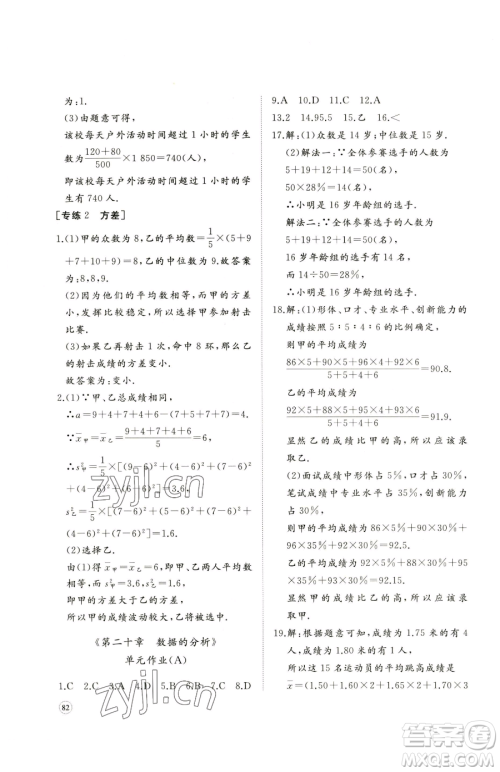 为:1.
(3)由题意可得,
该校每天户外活动时间超过1小时的学生
数为
120+80/500×1 850=740(人),
即该校每天户外活动时间超过1小时的学
生有740人.
[专练2 方差]
1.(1)甲的众数为8,乙的平均数=1/5×(5+9
+7+10+9)=8,乙的中位数为9.故答案
为:8,8,9.
(2)因为他们的平均数相等,而甲的方差
小,发挥比较稳定,所以选择甲参加射击
比赛.
(3)如果乙再射击一次,命中8环,那么乙
的射击成绩的方差变小.
故答案为:变小.
2.(1)∵甲、乙总成绩相同,
∴a=9+4+7+4+6-7-5-7-7=4,
x̄甲=9+4+7+4+6/5=6,
∴s²甲=1/5×[(9-6)²+(4-6)²+(7-6)²+
(4-6)²+(6-6)²]=3.6,
s²乙=1/5×[(7-6)²+(5-6)²+(7-6)²+
(4-6)²+(7-6)²]=1.6.
(2)选择乙.
由(1)得x̄甲=x̄乙=6,甲、乙两人平均成绩
相等,而s²甲=3.6,s²乙=1.6,乙的方差小于
甲的方差,即乙的成绩比甲的稳定,
所以乙将被选中.
《第二十章 数据的分析》
单元作业(A)
1.C 2.C 3.A 4.D 5.D 6.B 7.C 8.D
82
9.A 10.D 11.C 12.A
13.2 14.95.5 15.乙 16.<
17.解:(1)众数是14岁,中位数是15岁.
(2)解法一:∵全体参赛选手的人数为
5+19+12+14=50(名),
50×28%=14(名),
∴小明是16岁年龄组的选手.
解法二:∵全体参赛选手的人数为
5+19+12+14=50(名),
16岁年龄组的选手有14名,
而14÷50=28%,
∴小明是16岁年龄组的选手.
18.解:(1)形体、口才、专业水平、创新能力的
成绩按照5∶5∶4∶6计算,
则甲的平均成绩为
86×5+90×5+96×4+92×6/5+5+4+6=90.8.
乙的平均成绩为
92×5+88×5+95×4+93×6/5+5+4+6=91.9.
显然乙的成绩比甲的高,所以应该录
取乙.
(2)面试成绩中形体占5%,口才占30%,
笔试成绩中专业水平占35%,创新能力
占30%,
则甲的平均成绩为86×5%+90×30%+
96×35%+92×30%=92.5.
乙的平均成绩为92×5%+88×30%+
95×35%+93×30%=92.15.
显然甲的成绩比乙的高,所以应该录
用甲.
19.解:根据题意可知,成绩为1.75米的有4
名,成绩为1.80米的有3名,
则这15名运动员的平均跳高成绩是
x̄=(1.50+1.60×2+1.65×3+1.70×2
zyjl.cn
zyjl.cn